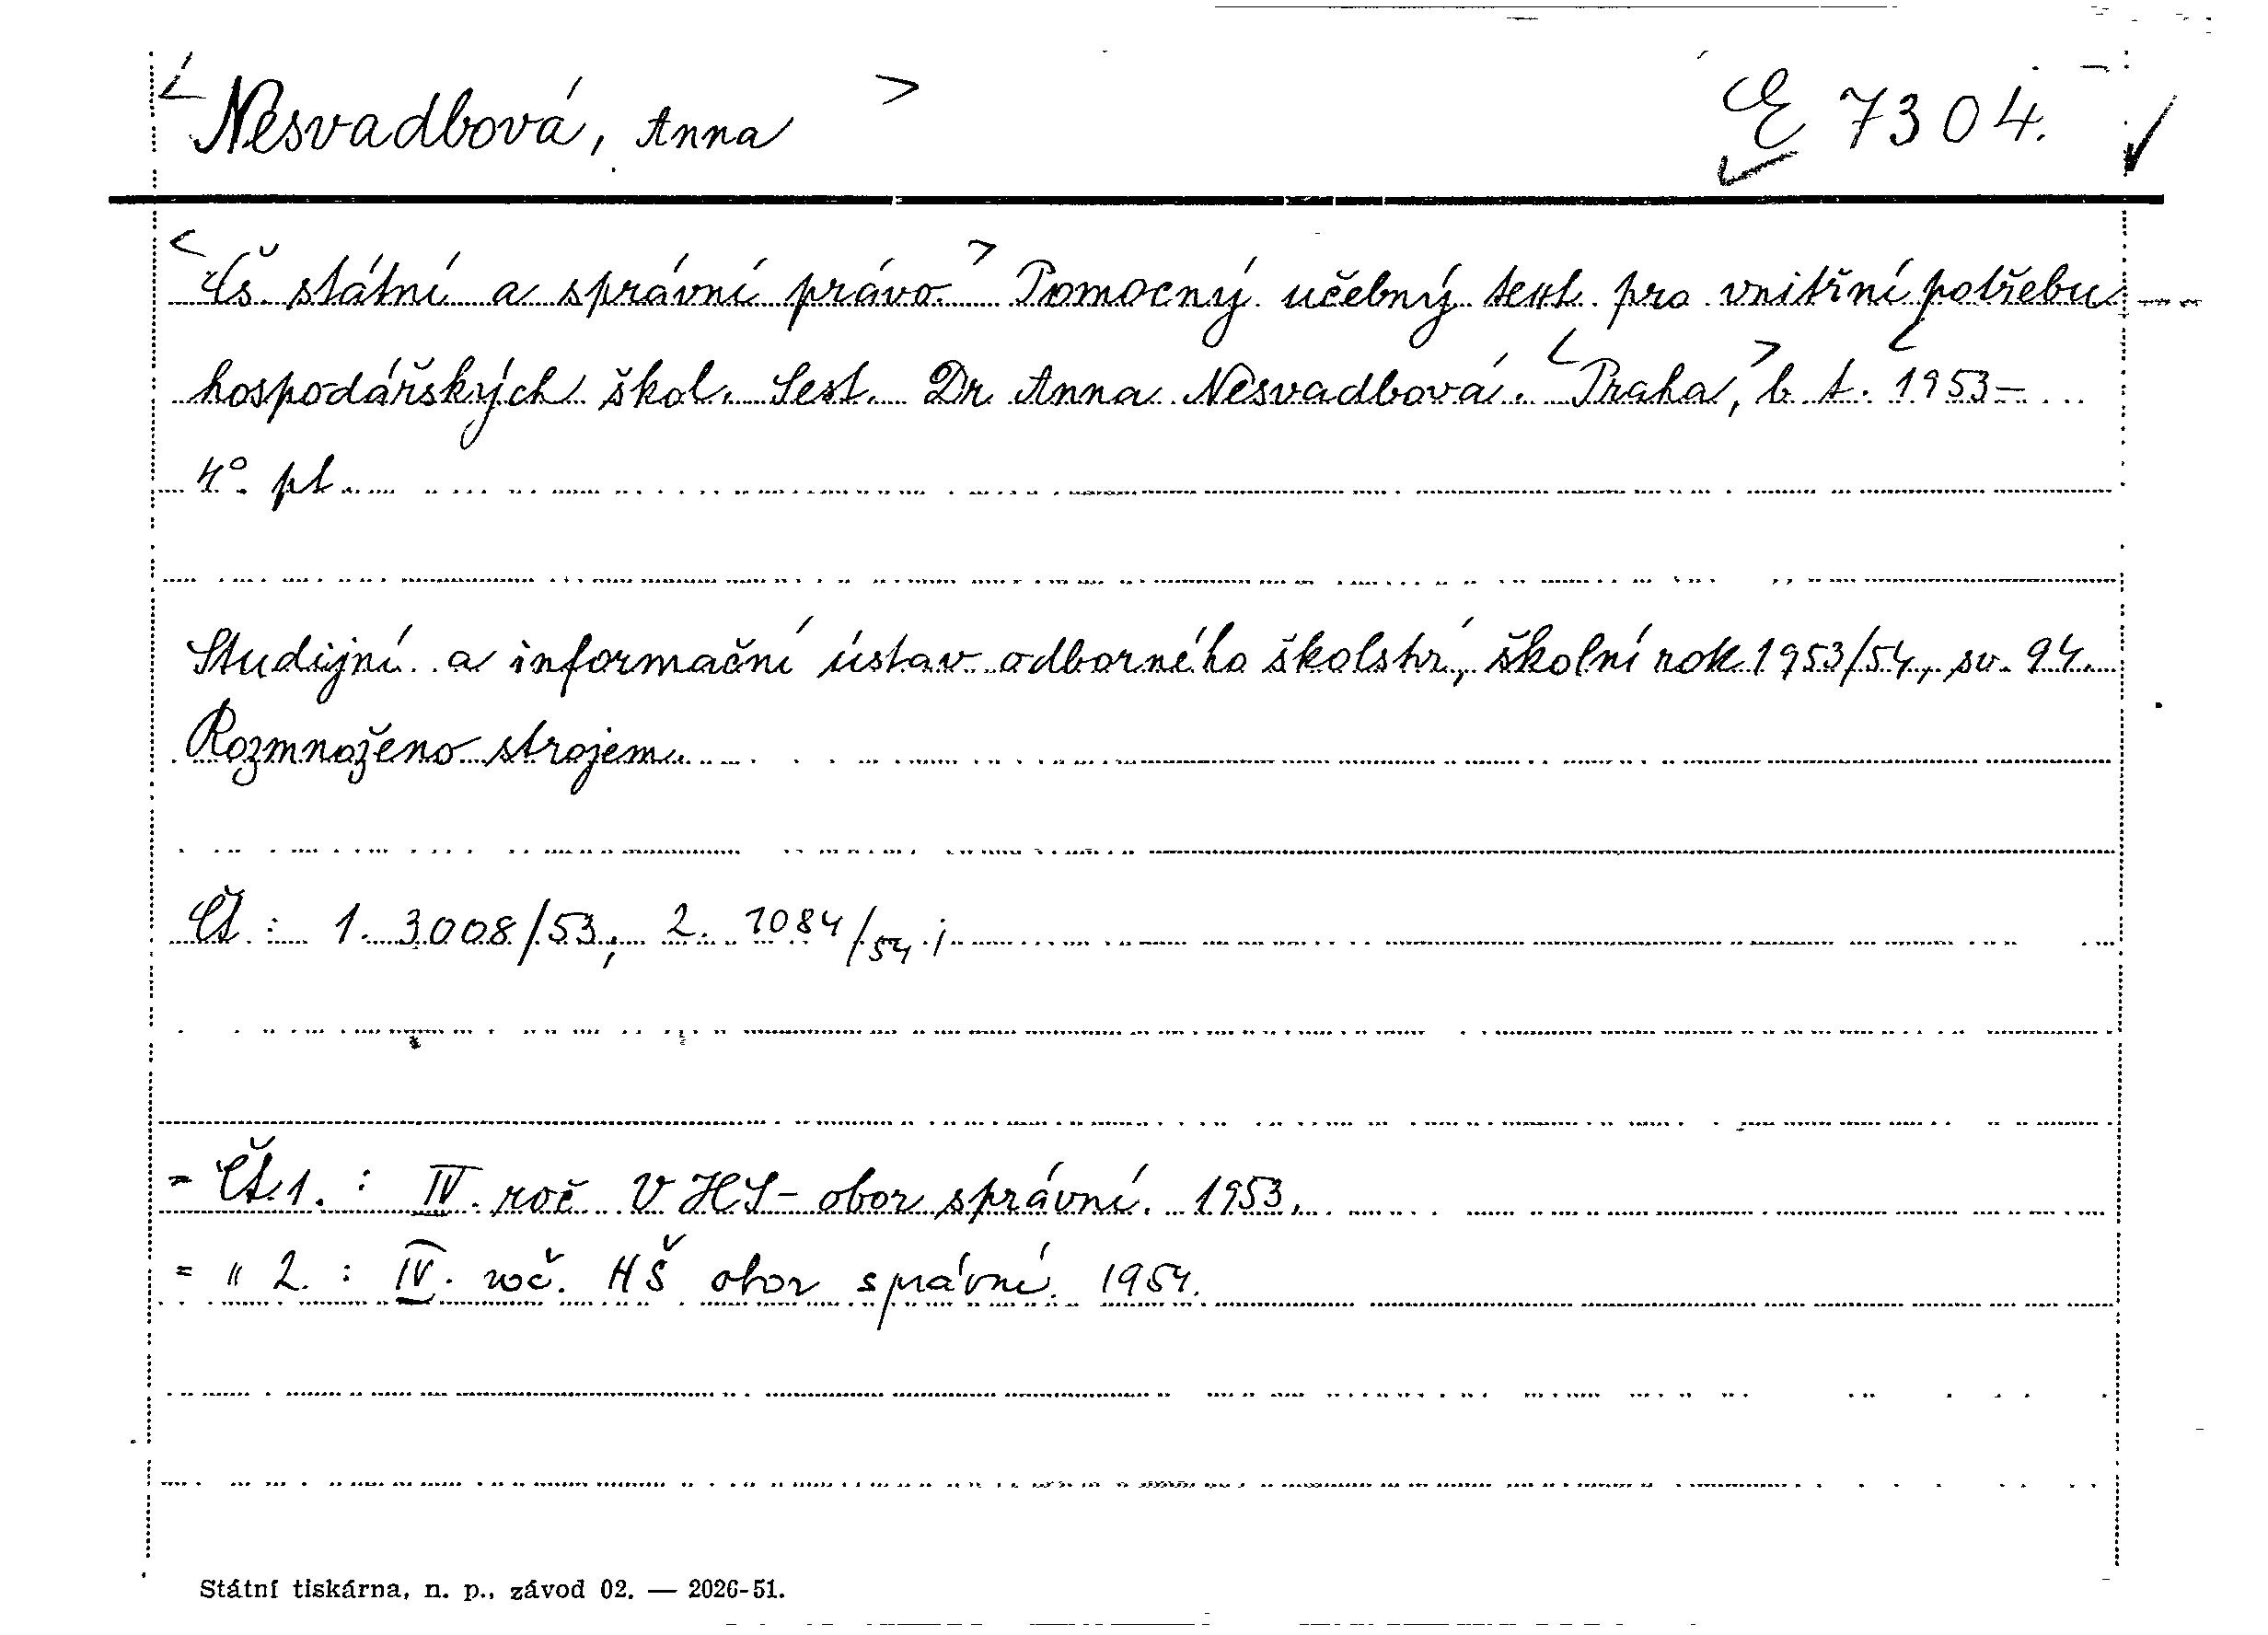 <Nesvadbová, Anna> E 7304.
<Čs. státní a správní právo.> Pomocný učebný text pro vnitřní potřebu
hospodářských škol. Sest. Dr Anna Nesvadbová. <Praha,> b. t. <1953—
4°. pl.
Studijní a informační ústav odborného školství, školní rok 1953/54, sv. 94.
Rozmnoženo strojem.
Čt : 1. 3008/53; 2. 1084/54 ;
= Čt. 1. : IV. roč VHS - obor správní. 1953.
= " 2. : IV. roč. HŠ obor správní. 1954.
Státní tiskárna, n. p., závod 02. — 2026-51.